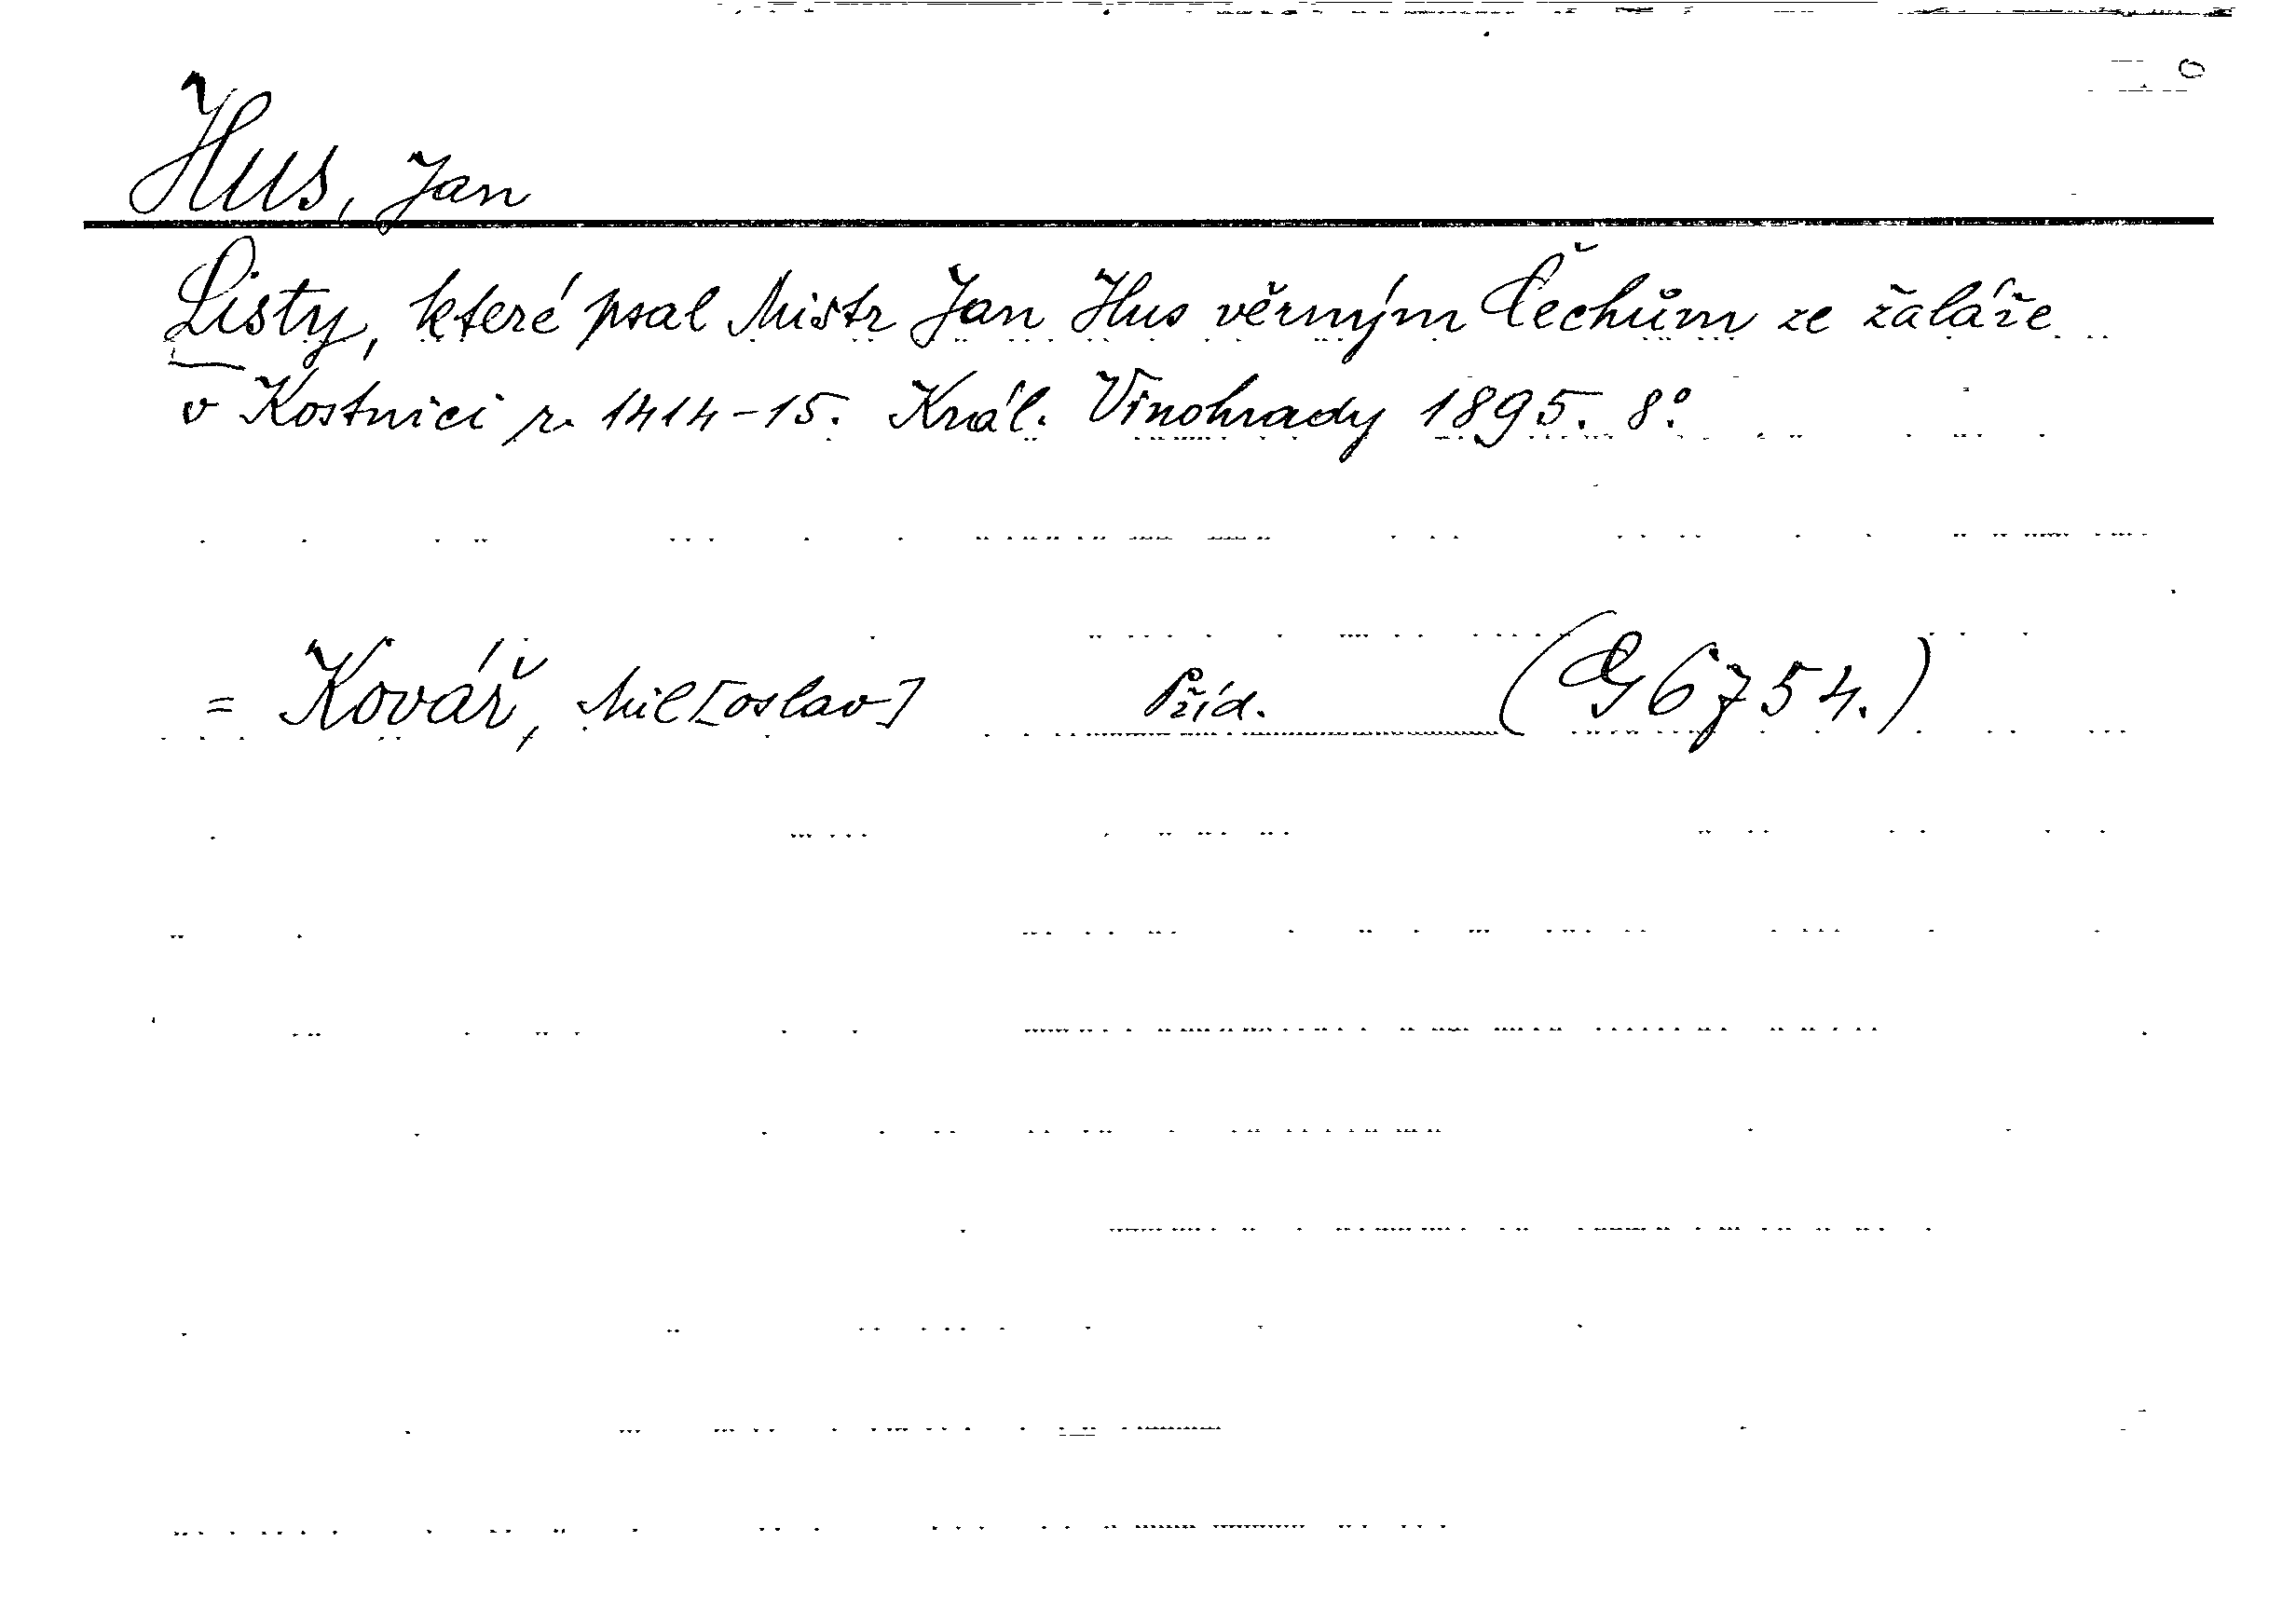 Hus, Jan
Listy, které psal Mistr Jan Hus věrným Čechům ze žaláře
v Kostnici r. 1414-15. Král. Vinohrady 1895. 8°
= Kovář, Mil[oslav] Příd. (G 6754.)